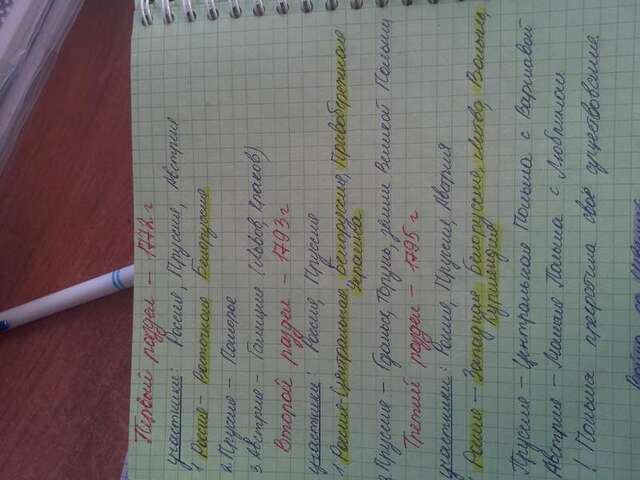 Первый раздел – 1772 г
участники: Россия, Пруссия, Австрия
1. Россия – Восточная Белоруссия
2. Пруссия – Поморье
3. Австрия – Галиция (Львов, Краков)
Второй раздел – 1793 г
участники: Россия, Пруссия
1. Россия – Центральная Белоруссия, Правобережная
Украина
2. Пруссия – Гданьск, Торунь, земли Великой Польши
Третий раздел – 1795 г
участники: Россия, Пруссия, Австрия
Россия – Западная Белоруссия, Литва, Волынь,
Курляндия
Пруссия – Центральная Польша с Варшавой
Австрия – Малая Польша с Люблином
! Польша прекратила своё существование